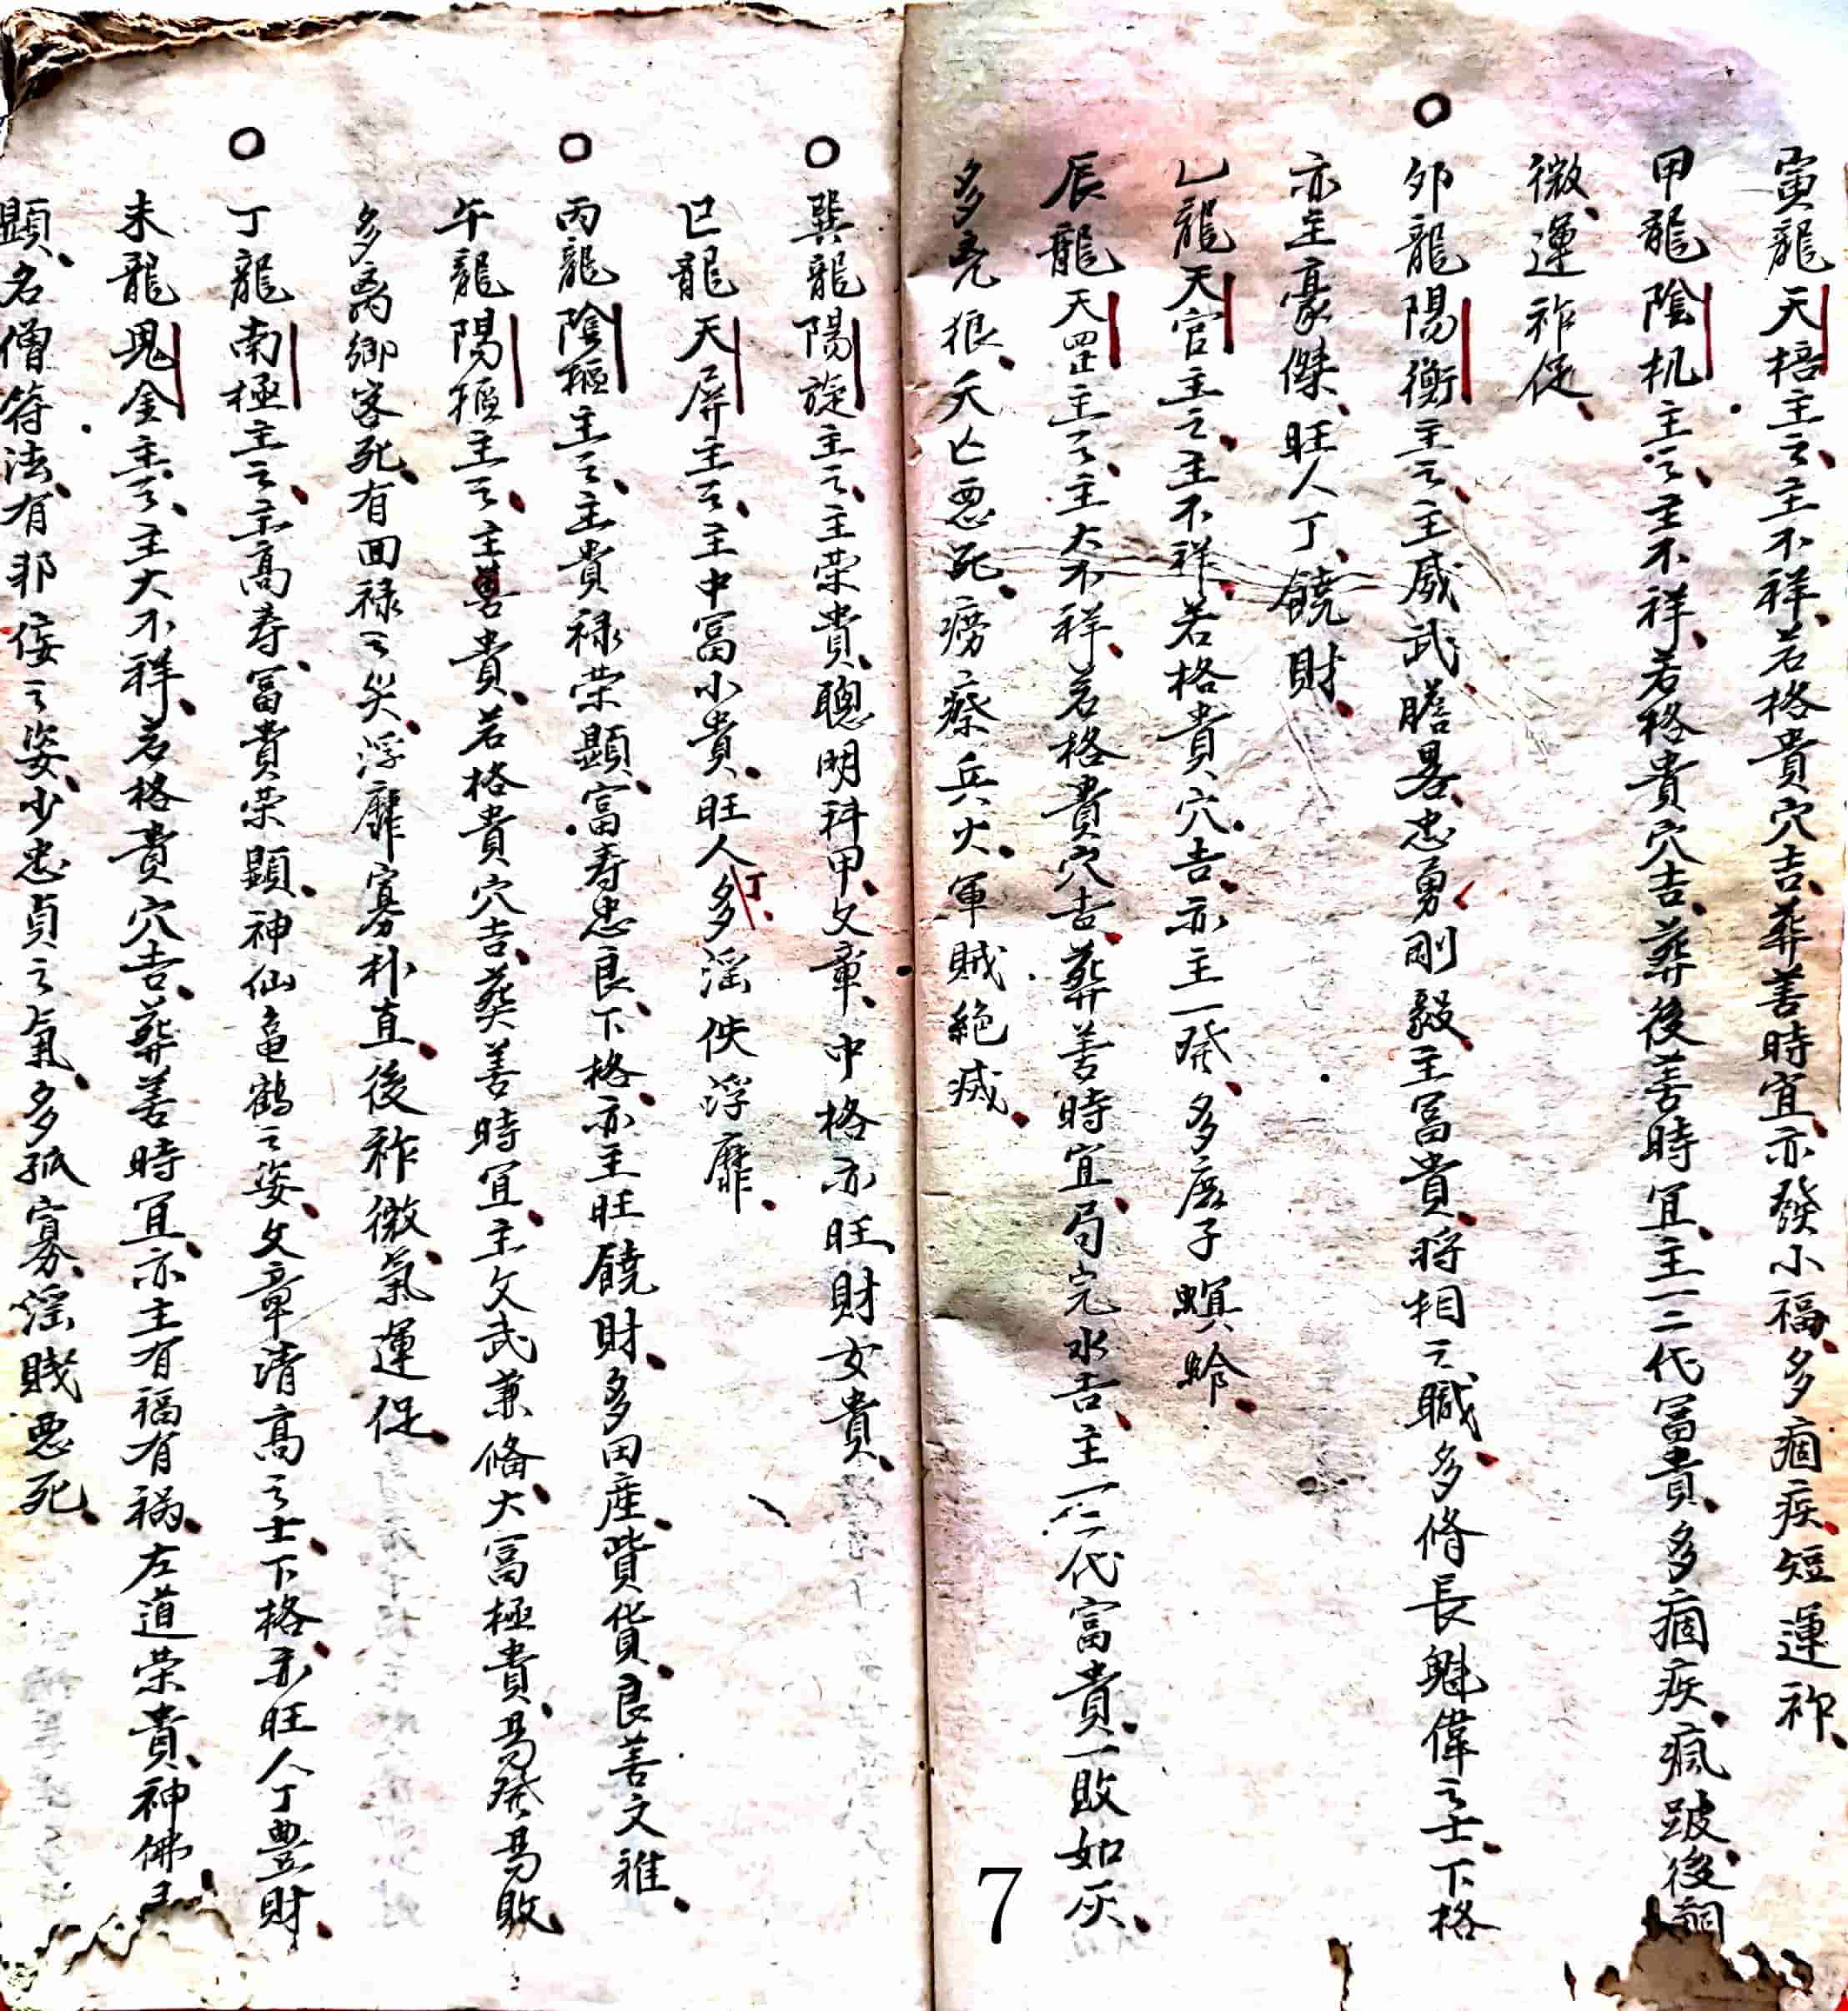 寅龍天棓主之主不祥若格貴穴吉葬善時宜亦發小福多痼疾短運祚
甲龍陰机主之主不祥若格貴穴吉葬後善時宜主一二代冨貴多痼疾瘋跛後嗣
微運祚促
○卯龍陽衡主之主威武膽畧忠勇剛毅主冨貴将相之職多脩長魁偉之士下格
亦主豪傑旺人丁饒財
乙龍天官主之主不祥若格貴穴吉亦主一発多庶子螟蛉
辰龍天罡主之主大不祥若格貴穴吉葬善時宜局完水吉主一二代富貴一敗如灰
多兇狼夭亡悪死癆瘵兵火軍賊絕滅
○巽龍陽旋主之主荣貴聰明科甲文章中格亦旺財女貴
巳龍天屏主之主中冨小貴旺人丁多淫佚浮靡
○丙龍陰樞主之主貴禄荣顯富寿忠良下格亦主旺饒財多田産貲貨良善文雅
午龍陽樞主之主貴若格貴穴吉葵善時宜主文武兼俻大冨極貴易発易敗
多离鄉客死有回禄之災浮靡寡朴直後祚微氣運促
○丁龍南極主之主高寿冨貴荣顯神仙龜鶴之姿文章清高之士下格亦旺人丁豊財
未龍鬼金主之主大不祥若格貴穴吉葬善時宜亦主有福有禍左道荣貴神佛
顯名僧符法有邪佞之姿少忠貞之氣多孤寡淫賤悪死
7